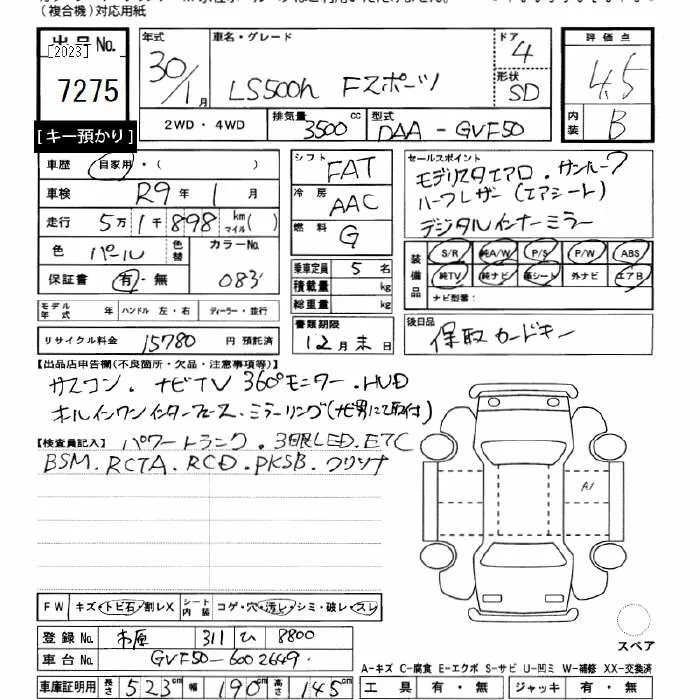 (複合機)対応用紙
出品No. 年式 車名・グレード ドア 評価点
[2023] 30/1月 LS500h Fスポーツ 4 4.5
7275 形状 SD
2WD・4WD 排気量 3500 cc 型式 DAA-GVF50 内装 B
[キー預かり]
車歴 自家用・( ) シフト FAT セールスポイント
車検 R9年 1月 冷房 AAC モデリスタエアロ・サンルーフ
走行 5万1千898 km マイル( ) 燃料 G ハーフレザー(エアシート)
色 パール 色替 カラーNo. 083 デジタルインナーミラー
保証書 有・無 乗車定員 5名 装備品 S/R 純A/W P/S P/W ABS
積載量 kg 純TV 純ナビ 革シート 外ナビ エアB
モデル年式 年 ハンドル 左・右 ディーラー・並行 総重量 kg ナビ型番:
リサイクル料金 15780 円 預託済 書類期限 12月末日 後日品 保取カードキー
【出品店申告欄(不良箇所・欠品・注意事項等)】
ガスコン・ナビTV 360°モニター・HUD
オルインワンインターフェース・ミラーリング(ナビ男にて取付)
【検査員記入】パワートランク・3眼LED・ETC
BSM・RCTA・RCD・PKSB・クリソナ
A1
FW キズ・トビ石・割レX シート内装 コゲ・穴・汚レ・シミ・破レ・スレ
登録No. 311 ひ 8800
車台No. GVF50-6002649
スペア
A-キズ C-腐食 E-エクボ S-サビ U-凹ミ W-補修 XX-交換済
車庫証明用 長さ 523cm 幅 190cm 高さ 145cm 工具 有・無 ジャッキ 有・無